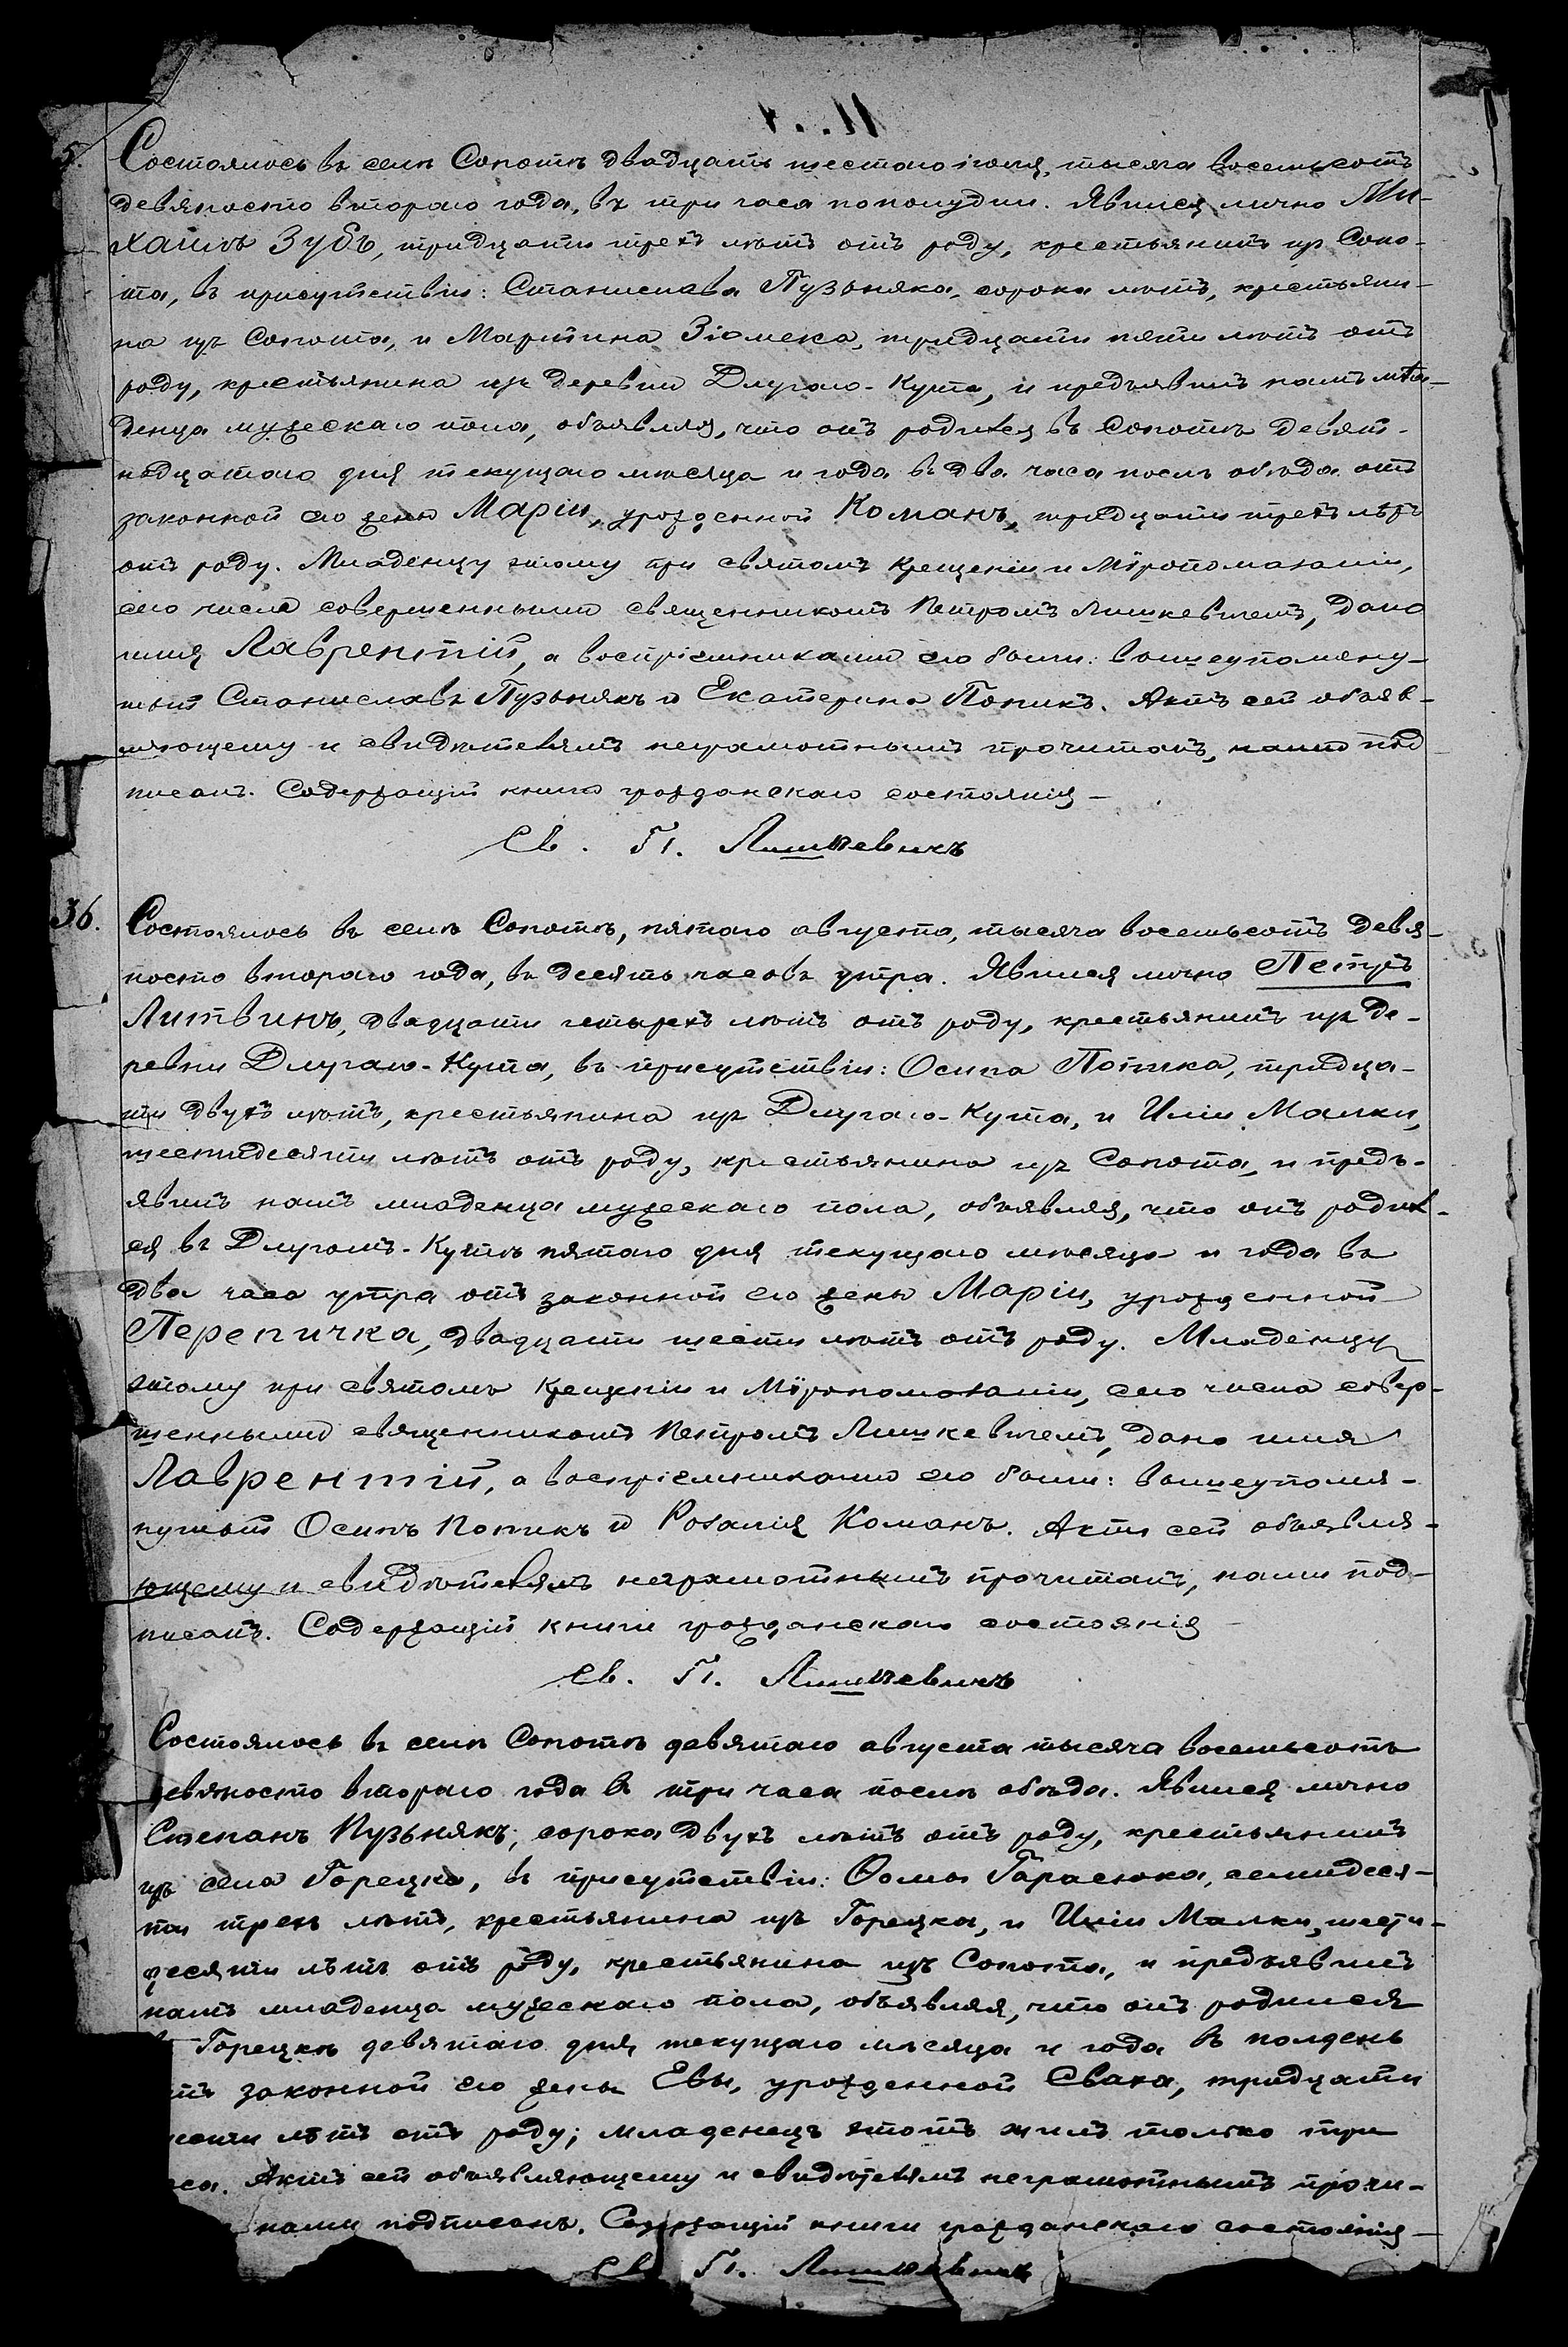 5. Состоялось въ селѣ Сопотѣ двадцать шестого іюля, тысяча восемьсотъ
девяносто второго года, въ три часа пополудни. Явился лично Ми-
хаилъ Зубъ, тридцати трехъ лѣтъ отъ роду, крестьянинъ изъ Сопо-
та, въ присутствіи: Станислава Пузьняка, сорока лѣтъ, крестьяни-
на изъ Сопота, и Мартина Зіомека, тридцати пяти лѣтъ отъ
роду, крестьянина изъ деревни Длугаго-Кута, и предъявилъ намъ мла-
денца мужескаго пола, объявляя, что онъ родился въ Сопотѣ девят-
надцатаго дня текущаго мѣсяца и года въ два часа послѣ обѣда отъ
законной его жены Маріи, урожденной Команъ, тридцати трехъ лѣтъ
отъ роду. Младенцу этому при святомъ крещеніи и Мѵропомазаніи,
сего числа совершенными священникомъ Петромъ Лишкевичемъ, дано
имя Лаврентій, а воспріемниками его были: вышеупомяну-
тый Станиславъ Пузьнякъ и Екатерина Попикъ. Актъ сей объяв-
ляющему и свидѣтелямъ неграмотнымъ прочитанъ, нами под
писанъ. Содержащій книги гражданскаго состоянія –
Св. П. Лишкевичъ
36. Состоялось въ селѣ Сопотѣ, пятаго августа, тысяча восемьсотъ девя-
носто второго года, въ десять часовъ утра. Явился лично Петръ
Литвинъ, двадцати четырехъ лѣтъ отъ роду, крестьянинъ изъ де-
ревни Длугаго-Кута, въ присутствіи: Осипа Попика, тридца-
ти двухъ лѣтъ, крестьянина изъ Длугаго-Кута, и Иліи Малки,
шестидесяти лѣтъ отъ роду, крестьянина изъ Сопота, и предъ-
явилъ намъ младенца мужескаго пола, объявляя, что онъ родил-
ся въ Длугомъ-Кутѣ пятаго дня текущаго мѣсяца и года въ
два часа утра отъ законной его жены Маріи, урожденной
Перепичка, двадцати шести лѣтъ отъ роду. Младенцу
этому при святомъ крещеніи и Мѵропомазаніи, сего числа совер-
шенными священникомъ Петромъ Лишкевичемъ, дано имя
Лаврентій, а воспріемниками его были: вышеупомя-
нутый Осипъ Попикъ и Розалія Команъ. Актъ сей объявля-
ющему и свидѣтелямъ неграмотнымъ прочитанъ, нами под-
писанъ. Содержащій книги гражданскаго состоянія
Св. П. Лишкевичъ
Состоялось въ селѣ Сопотѣ девятаго августа тысяча восемьсотъ
девяносто второго года въ три часа послѣ обѣда. Явился лично
Степанъ Пузьнякъ, сорока двухъ лѣтъ отъ роду, крестьянинъ
изъ села Горецка, въ присутствіи: Ѳомы Гарасюка, семидеся-
ти трехъ лѣтъ, крестьянина изъ Горецка, и Иліи Малки, шести-
десяти лѣтъ отъ роду, крестьянина изъ Сопота, и предъявилъ
намъ младенца мужескаго пола, объявляя, что онъ родился
Горецкѣ девятаго дня текущаго мѣсяца и года въ полдень
законной его жены Евы, урожденной Свака, тридцати
лѣтъ отъ роду; младенецъ этотъ жилъ только три
Актъ сей объявляющему и свидѣтелямъ неграмотнымъ прочи-
нами подписанъ. Содержащій книги гражданскаго состоянія –
Св. П. Лишкевичъ